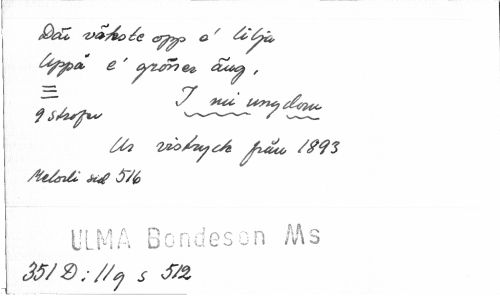 Där växste opp e' lilja
Uppå e' gröner äng.
9 strofer
I mi ungdom
Ur vistryck från 1893
Melodi sid 516
ULMA Bondeson Ms
351 D: 11 q s 512